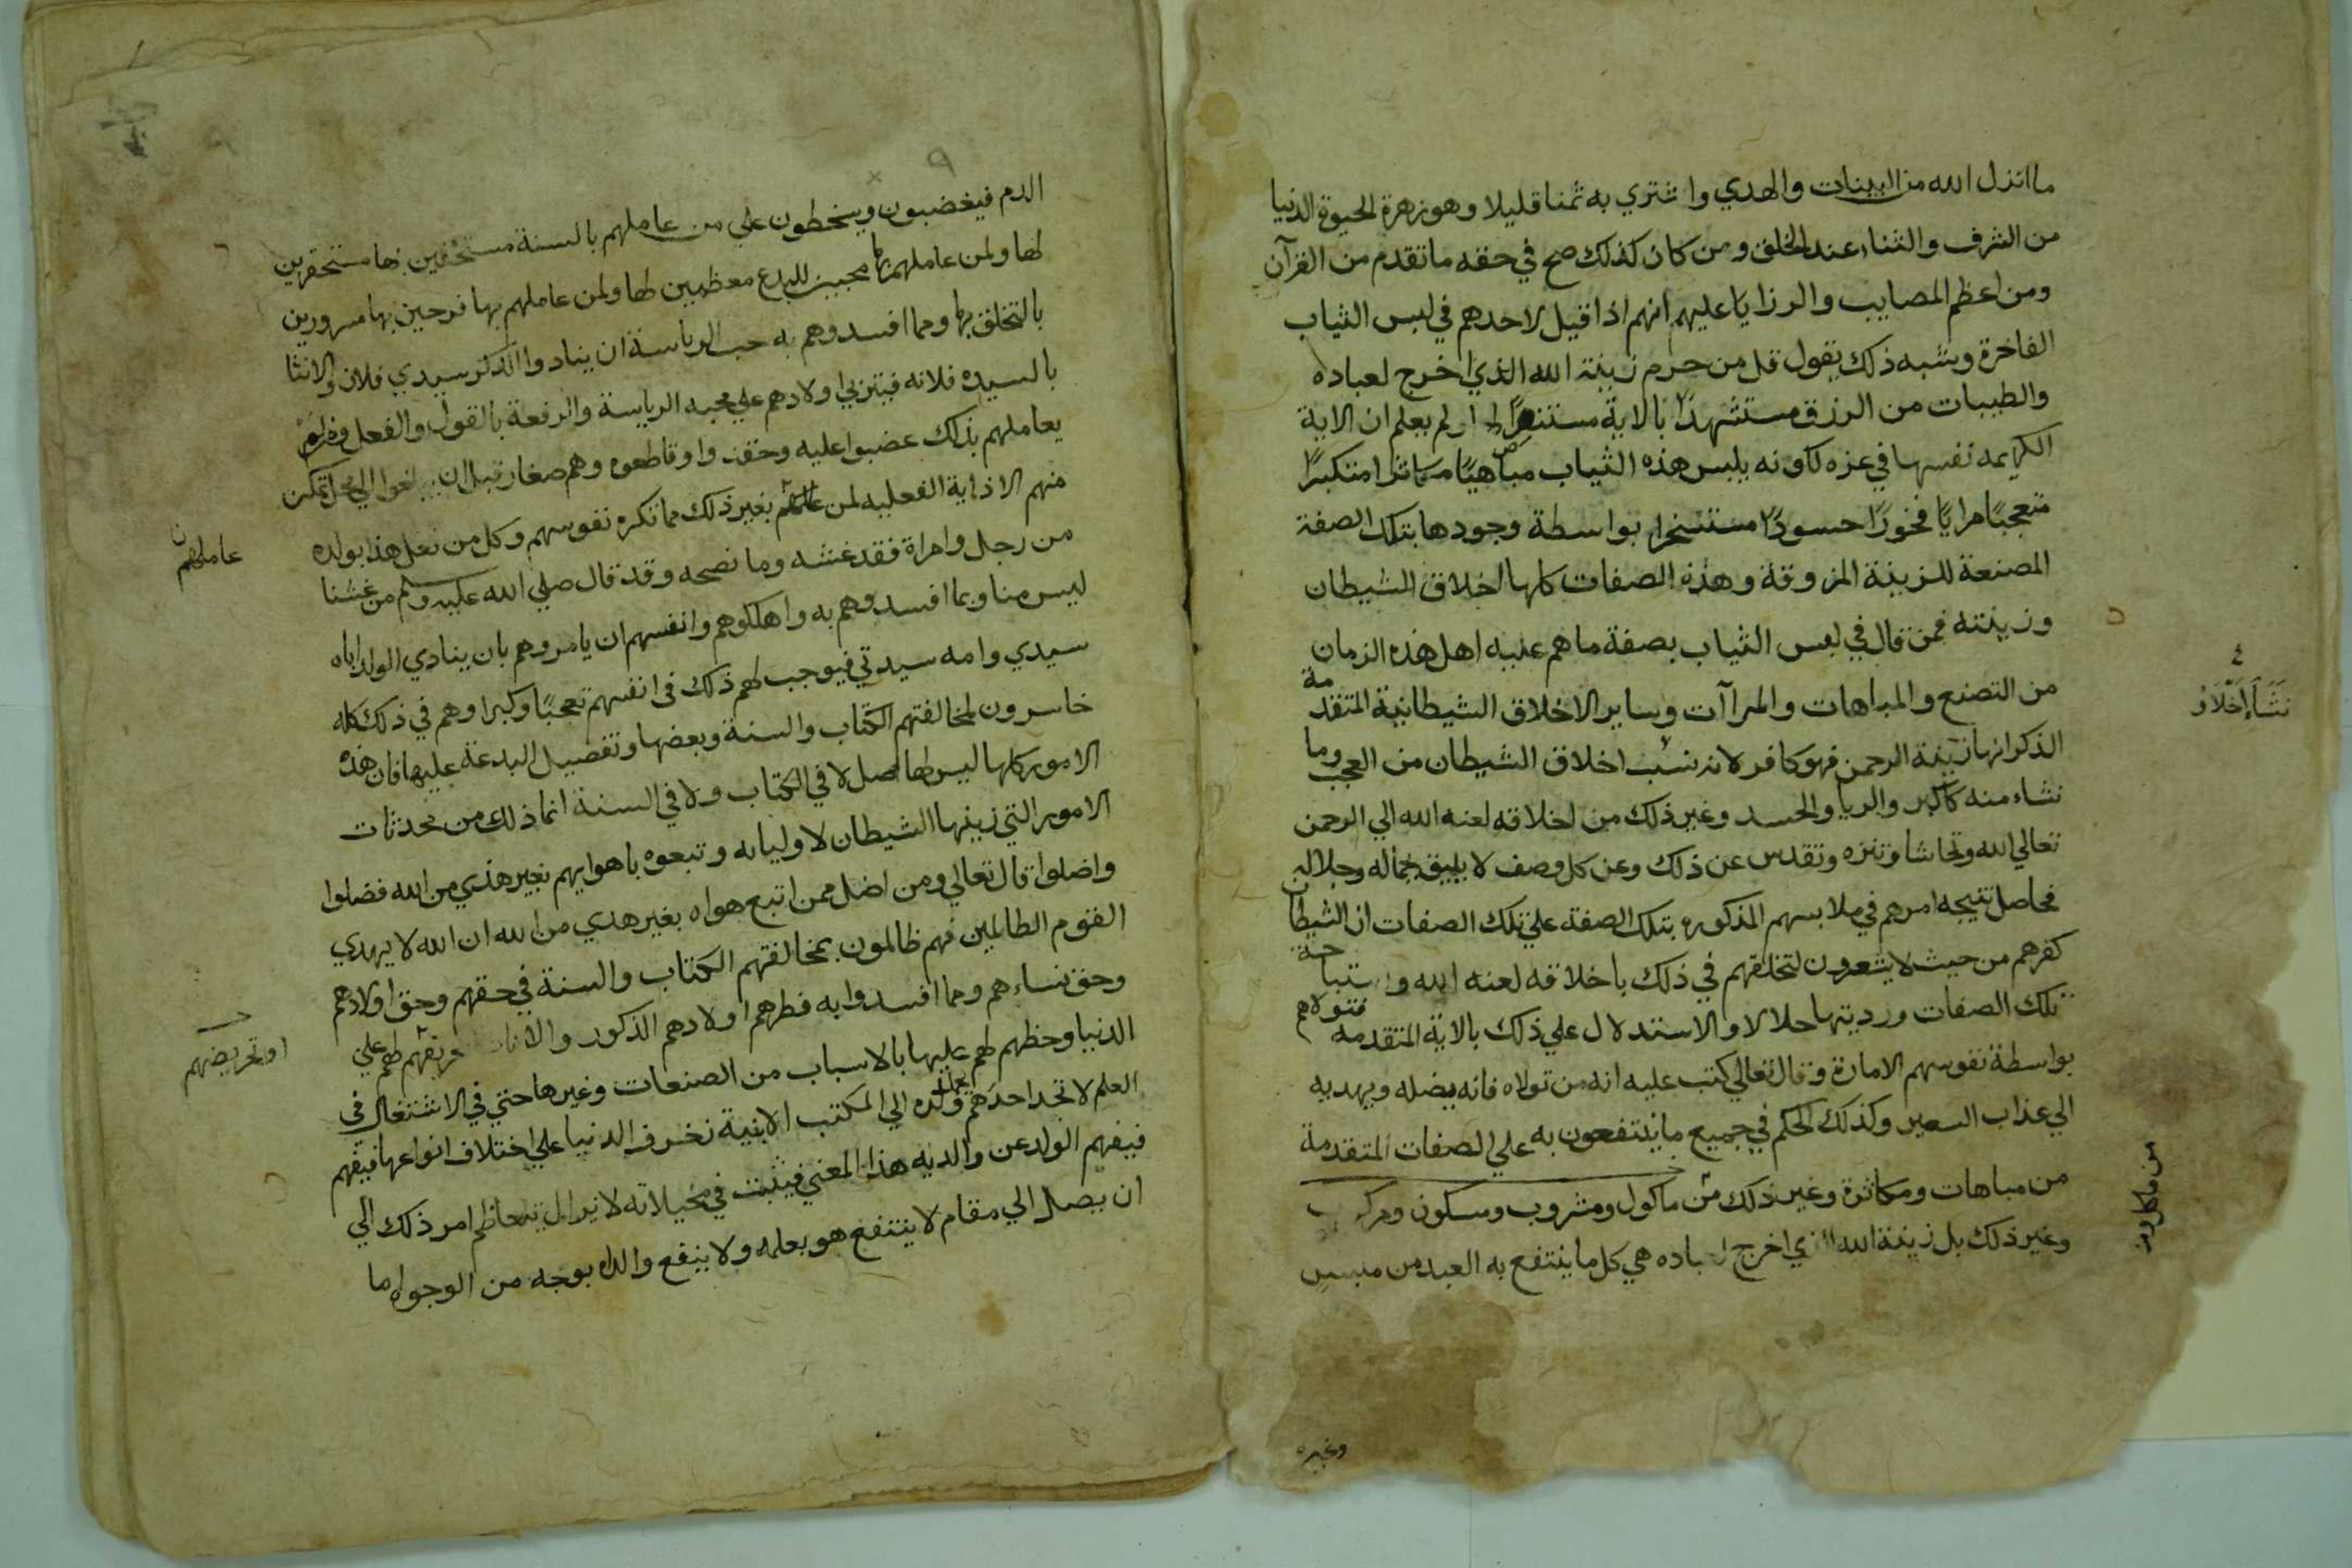 ما انزل الله من البينات والهدي واشتري به ثمنا قليلا وهو زهرة الحيوة الدنيا
من الشرف والثناء عند الخلق ومن كان كذلك صح في حقه ما تقدم من القرآن
ومن اعظم المصايب والرزايا عليهم انهم اذا قيل لاحدهم في لبس الثياب
الفاخرة وشبه ذلك يقول قل من حرم زينة الله الذي اخرج لعباده
والطيبات من الرزق مستشهدًا بالاية او لم يعلم ان الاية
الكريمه نفسها في عزه لكونه يلبس هذه الثياب مباهيًا متكبرًا
متعجبًا مرايًا فخورًا حسودًا بواسطة وجودها بتلك الصفة
المصنعة للزينة المزوقة وهذه الصفات كلها اخلاق الشيطان
وزينته فمن قال في لبس الثياب بصفة ما هم عليه اهل هذه الزمان
من التصنع والمباهات والمراآت وساير الاخلاق الشيطانية المتقدمة
الذكر انها زينة الرحمن فهو كافر لانه نسب اخلاق الشيطان من العجب وما
نشاء منه كالكبر والريا والحسد وغير ذلك من اخلاقه لعنه الله الي الرحمن
تعالي الله وتحاشا وتنزه وتقدس عن ذلك وعن كل وصف لا يليق بجماله وجلاله
فحاصل نتيجه امرهم في ملابسهم المذكوره بتلك الصفة علي تلك الصفات ان الشيطان
كفرهم من حيث لا يشعرون لتخلقهم في ذلك باخلاقه لعنه الله واستباحة
تلك الصفات ورديتها حلالا والاستدلال علي ذلك بالاية المتقدمه فتولاهم
بواسطة نفوسهم الامارة وقال تعالي كتب عليه انه من تولاه فانه يضله ويهديه
الي عذاب السعير وكذلك الحكم في جميع ما ينتفعون به علي الصفات المتقدمة
من مباهات ومكاثرة وغير ذلك من ماكول ومشروب ومسكون ومركوب
وغير ذلك بل زينة الله الذي اخرج لعباده هي كل ما ينتفع به العبد من ملبس
وغيره
الدم فيغضبون ويسخطون علي من عاملهم بالسنة مستخفين بها مستحقرين
لها ولمن عاملهم بها محبين للبدع معظمين لها ولمن عاملهم بها فرحين بها مسرورين
بالتخلق بها ومما افسدوهم به حب الرياسة ان ينادوا الذكر سيدي فلان والانثا
بالسيده فلانه فيتربي اولادهم علي محبه الرياسة والرفعة بالقول والفعل
يعاملهم بذلك غضبوا عليه وحقدوا وقاطعوه وهم صغار قبل ان يبلغوا الي محل تمكن
منهم الاذاية الفعليه لمن عاملهم بغير ذلك مما تكره نفوسهم وكل من فعل هذا بولده
عاملهم
من رجل وامراة فقد غشه وما نصحه وقد قال صلي الله عليه وسلم من غشنا
ليس منا ومما افسدوهم به واهلكوهم وانفسهم ان يامروهم بان ينادي الولد اباه
سيدي وامه سيدتي فيوجب لهم ذلك في انفسهم تعجبًا وكبرا وهم في ذلك كله
خاسرون لمخالفتهم الكتاب والسنة وبعضها وتفضيل البدعة عليها فان هذه
الامور كلها ليس لها اصل لا في الكتاب ولا في السنة انما ذلك من محدثات
الامور التي زينها الشيطان لاوليايه وتبعوه باهوايهم بغير هدي من الله فضلوا
واضلوا قال تعالي ومن اضل ممن اتبع هواه بغير هدي من الله ان الله لا يهدي
القوم الظالمين فهم ظالمون بمخالفتهم الكتاب والسنة في حقهم وحق اولادهم
وحق نساءهم ومما افسدوا به فطرهم اولادهم الذكور والاناث لهم علي
او تحريضهم
الدنيا وحظهم لهم عليها بالاسباب من الصنعات وغيرها حتي في الاشتغال في
العلم لا تجد احدهم ولده الي المكتب الا بنية زخرف الدنيا علي اختلاف انواعها فيفهم
فيفهم الولد عن والديه هذا المعني فيثبت في مخيلاته لا يزال يتعاظم امر ذلك الي
ان يصل الي مقام لا ينتفع هو بعلمه ولا ينفع والداه بوجه من الوجوه اما